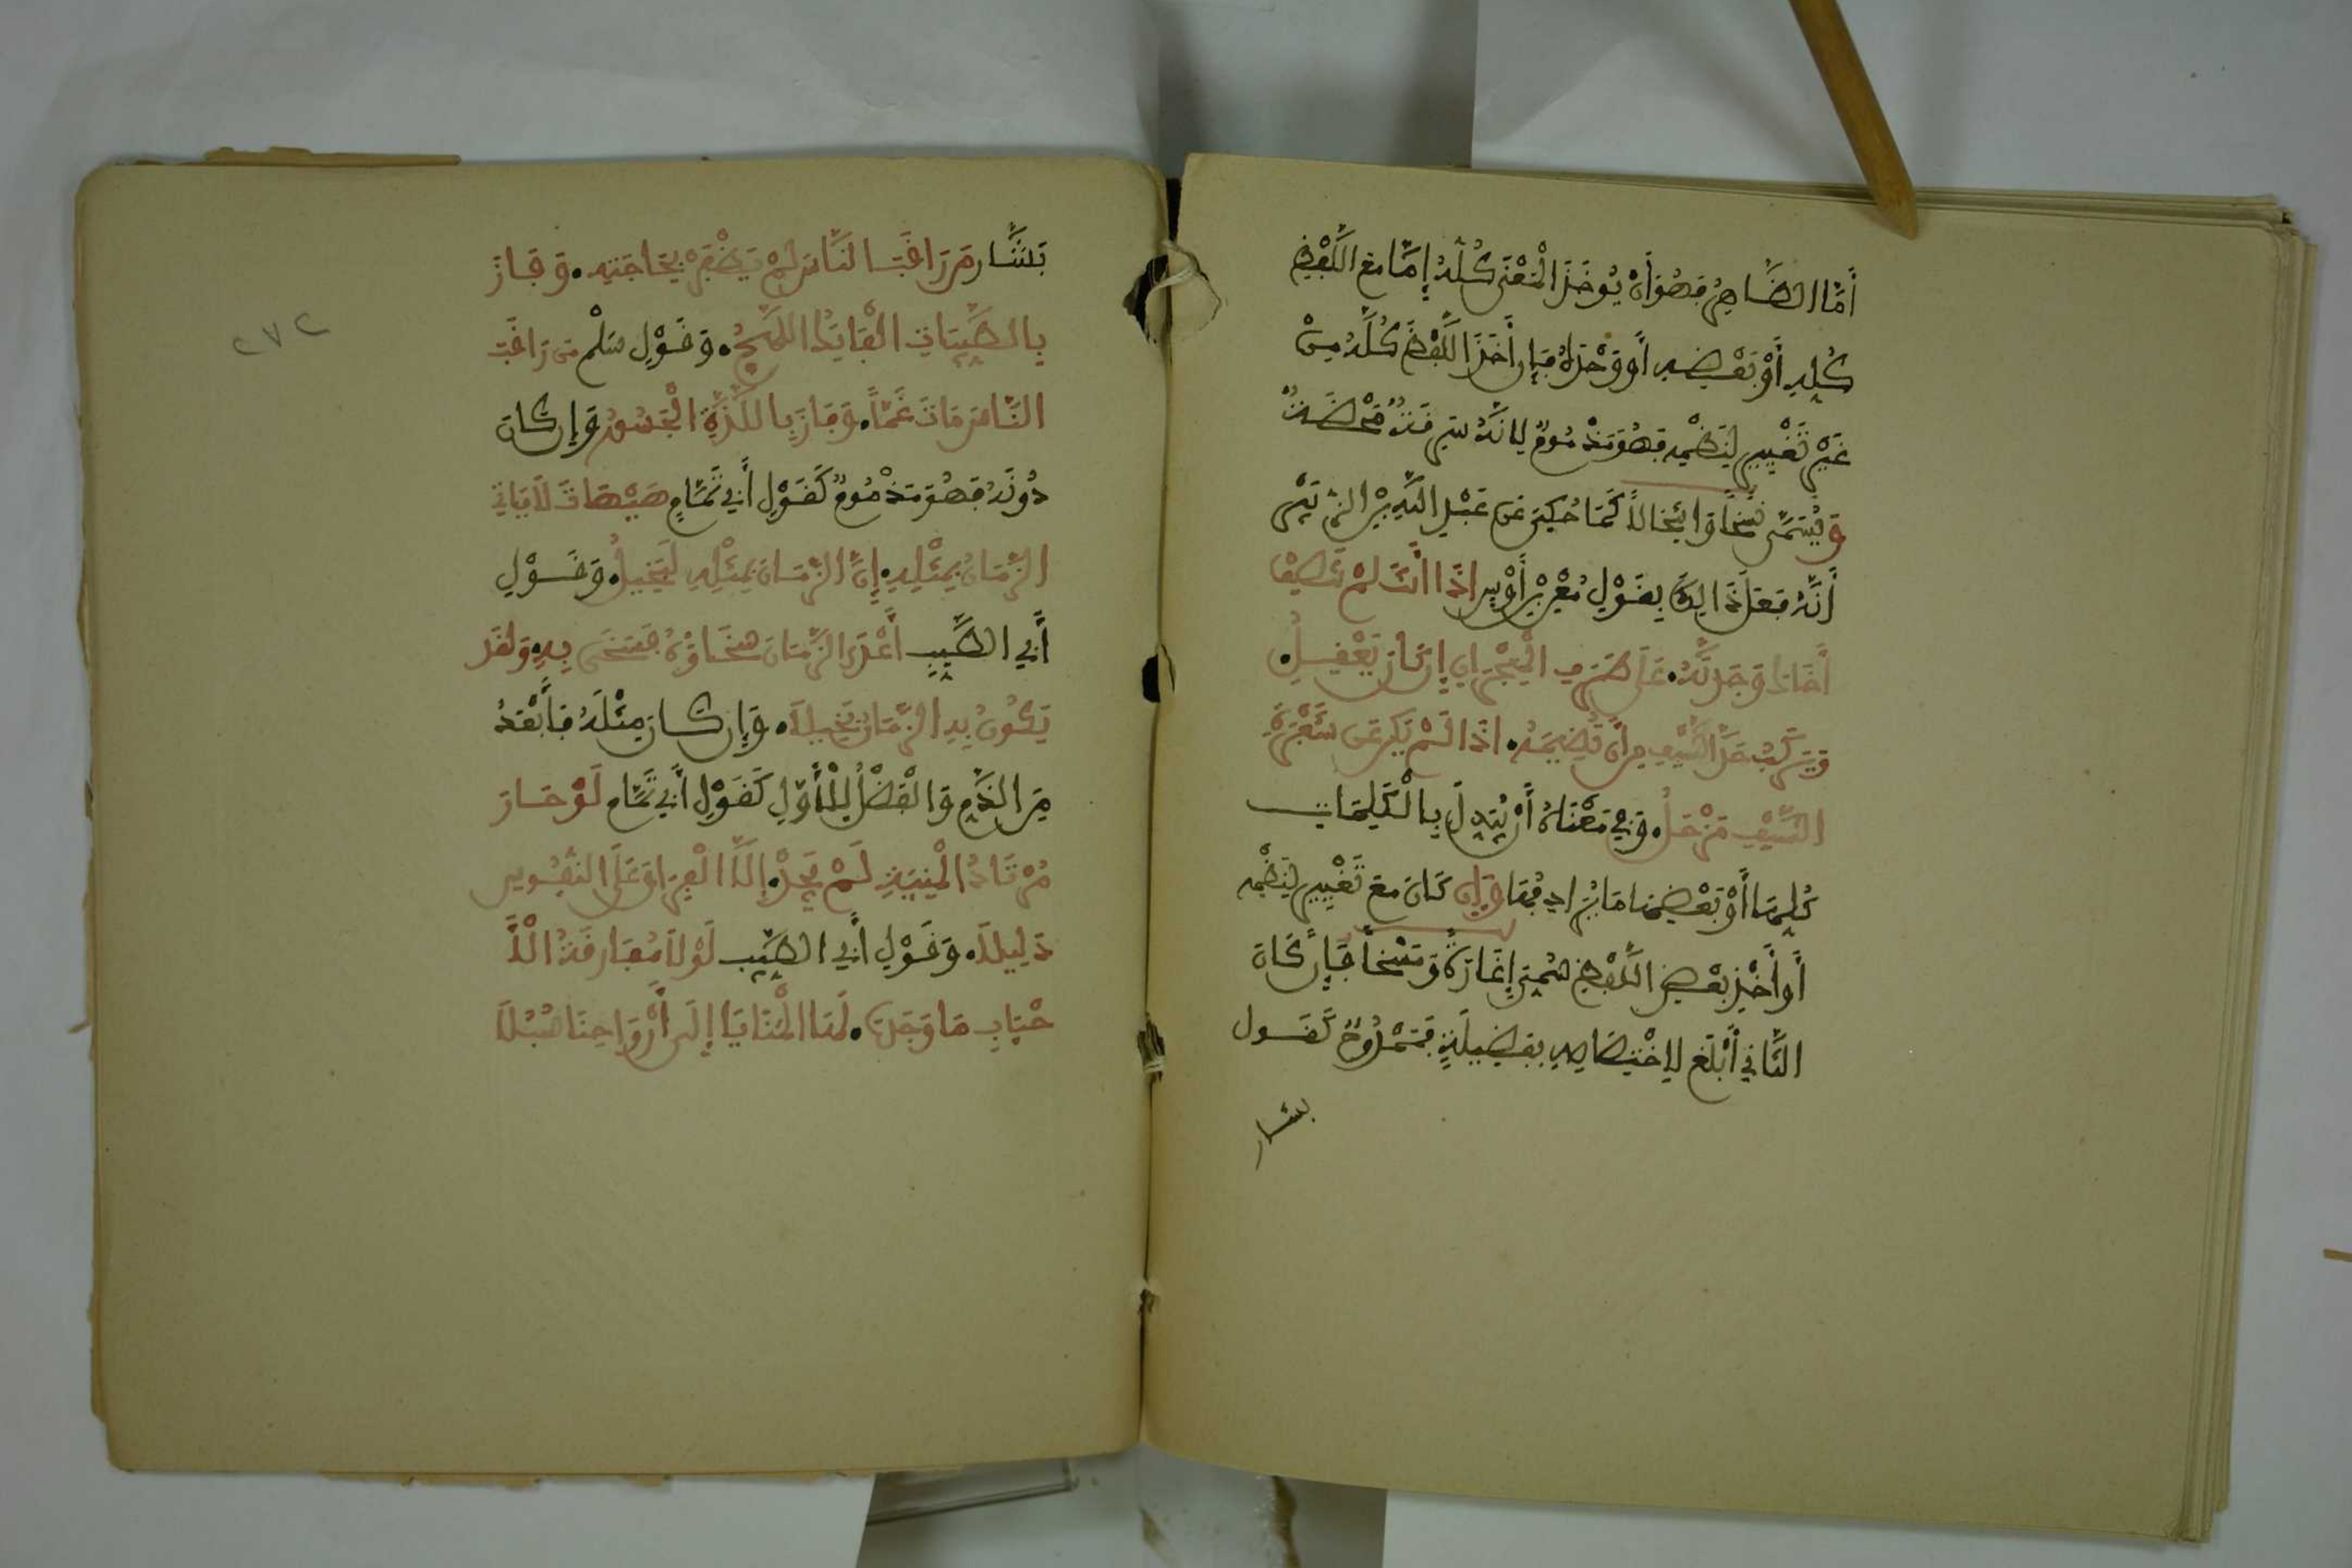 أَمَّا الظَّاهِرُ فَهُوَ أَنْ يُوخَذَ الْمَعْنَى كُلُّهُ إِمَّا مَعَ اللَّفْظِ
كُلِّهِ أَوْ بَعْضِهِ أَوْ وَحْدَهُ فَإِن أُخِذَ اللَّفْظُ كُلُّهُ مِنْ
غَيْرِ تَغْيِيرٍ لِنَظْمِهِ فَهُوَ مَذْمُومٌ لِانَّهُ سَرِقَةٌ مَحْضَةٌ
وَيُسَمَّى نَسْخًا وَانْتِحَالاً كَمَا حُكِيَ عَن عَبْدِ اللَّهِ بْنِ الزُّبَيْرِ
أَنَّهُ فَعَلَ ذَالِكَ بِقَوْلِ مُعْنِ بْنِ أَوْسٍ اذَا أَنْتَ لَمْ تُنْصِفْ
أَخَاكَ وَجَدتَّهُ. عَلَى طَرَفِ الْهِجْرَانِ إِن كَانَ يَعْقِلُ.
وَيَرْكَبُ حَدَّ السَّيْفِ مِن أَن تَضِيمَهُ. اذَا لَمْ يَكُن عَن شَفْرَةِ
السَّيْفِ مَزْحَلُ. وَفِي مَعْنَاهُ أَنْ يُبَدِلَ بِالْكَلِمَاتِ
كُلِّهَا أَوْ بَعْضِهَا مَا يُرَادِفُهَا وَإِن كَانَ مَعَ تَغْيِيرٍ لِنَظْمِهِ
أَو أَخْذِ بَعْضِ اللَّفْظِ سُمِّيَ إِغَارَةً وَمَسْخًا فَإِن كَانَ
الثَّانِي أَبْلَغَ لِاخْتِصَاصِهِ بِفَضِيلَةٍ فَمَمْدُوحٌ كَقَول
بشار
٢٧٢
بَشَّارٍ مَن رَاقَبَ النَّاسَ لَمْ يَظْفَرْ بِحَاجَتِهِ. وَفَازَ
بِالطَّيِّبَاتِ الْفَاتِكُ اللَّهِجُ. وَقَوْلِ سَلْمٍ مَن رَاقَبَ
النَّاسَ مَاتَ غَمًّا. وَفَازَ بِاللَّذَّةِ الْجَسُورُ وَإِن كَانَ
دُونَهُ فَهُوَ مَذْمُومٌ كَقَوْلِ أَبِي تَمَّامٍ هَيْهَاتَ لَا يَاتِي
الزَّمَانُ بِمِثْلِهِ. إِنَّ الزَّمَانَ بِمِثْلِهِ لَبَخِيلُ. وَقَوْلِ
أَبِي الطَّيِّبِ أَعْدَى الزَّمَانَ سَخَاؤُهُ فَسَخَى بِهِ. وَلَقَد
يَكُونُ بِهِ الزَّمَانُ بَخِيلَا. وَإِن كَانَ مِثْلَهُ فَأَبْعَدُ
مِنَ الذَّمِّ وَالْفَضْلُ لِلْأَوَّلِ كَقَوْلِ أَبِي تَمَّام لَوْ حَارَ
مُرْتَادُ الْمَنِيَّةِ لَمْ يَجِدْ. إِلَّا الْفِرَاقَ عَلَى النُّفُوسِ
دَلِيلَا. وَقَوْلِ أَبِي الطَّيِّبِ لَوْلَا مُفَارَقَةُ الْأَ
حْبَابِ مَا وَجَدَتْ. لَهَا الْمَنَايَا إِلَى أَرْوَاحِنَا سُبُلَا